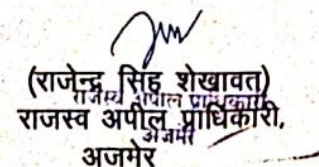 (राजेन्द्र सिंह शेखावत)
राजस्व अपील प्राधिकारी
राजस्व अपील प्राधिकारी,
अजमेर
अजमेर